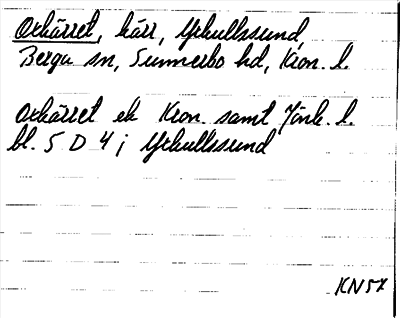 Orkärret, kärr, Yxkullssund,
Berga sn, Sunnerbo hd, Kron. l.
Orkärret ek Kron. samt Jönk. l.
bl. 5 D 4 i Yxkullssund
KN57